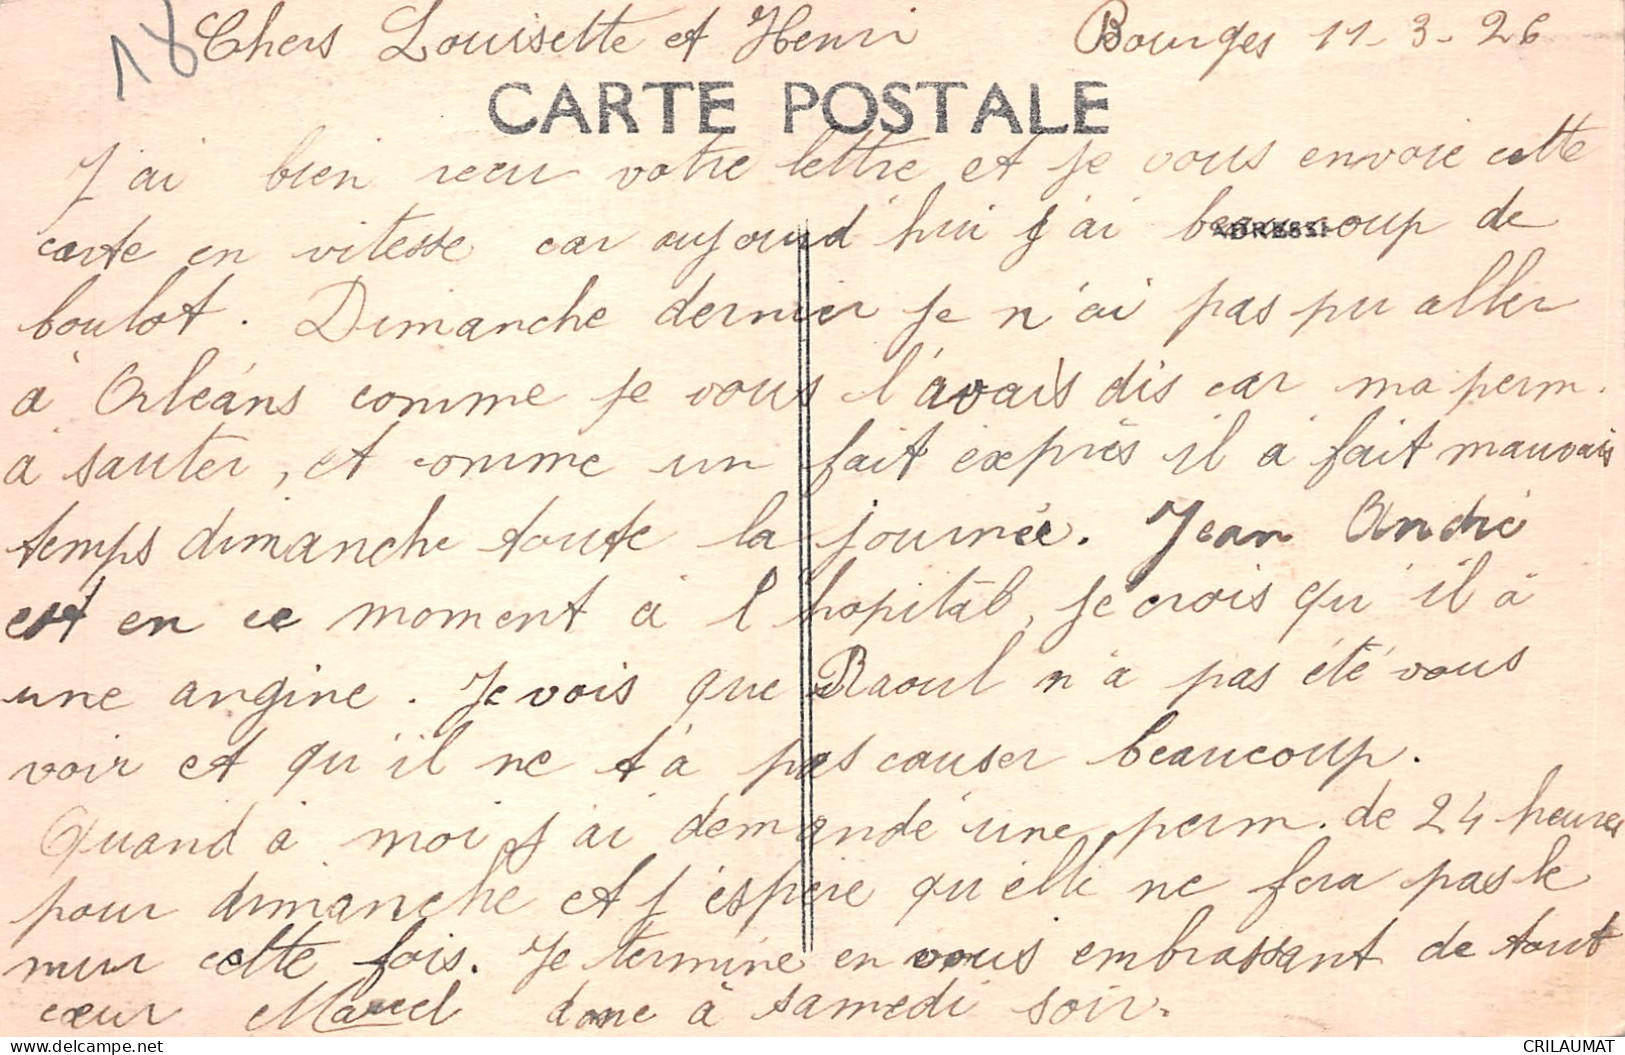 18
Chers Louisette et Henri Bourges 11-3-26
CARTE POSTALE
J'ai bien recu votre lettre et je vous envoie cette
carte en vitesse car aujourd'hui j'ai beaucoup de
ADRESSE
boulot. Dimanche dernier je n'ai pas pu aller
à Orléans comme je vous l'avais dis car ma perm.
à sauter, et comme un fait exprès il a fait mauvais
temps dimanche toute la journée. Jean André
est en ce moment à l'hopital, je crois qu'il à
une angine. Je vois que Raoul n'a pas été vous
voir et qu'il ne t'a pas causer beaucoup.
Quand à moi j'ai demandé une perm. de 24 heures
pour dimanche et j'espère qu'elle ne fera pas le
mur cette fois. Je termine en vous embrassant de tout
cœur Marcel donc à samedi soir.
www.delcampe.net CRILAUMAT